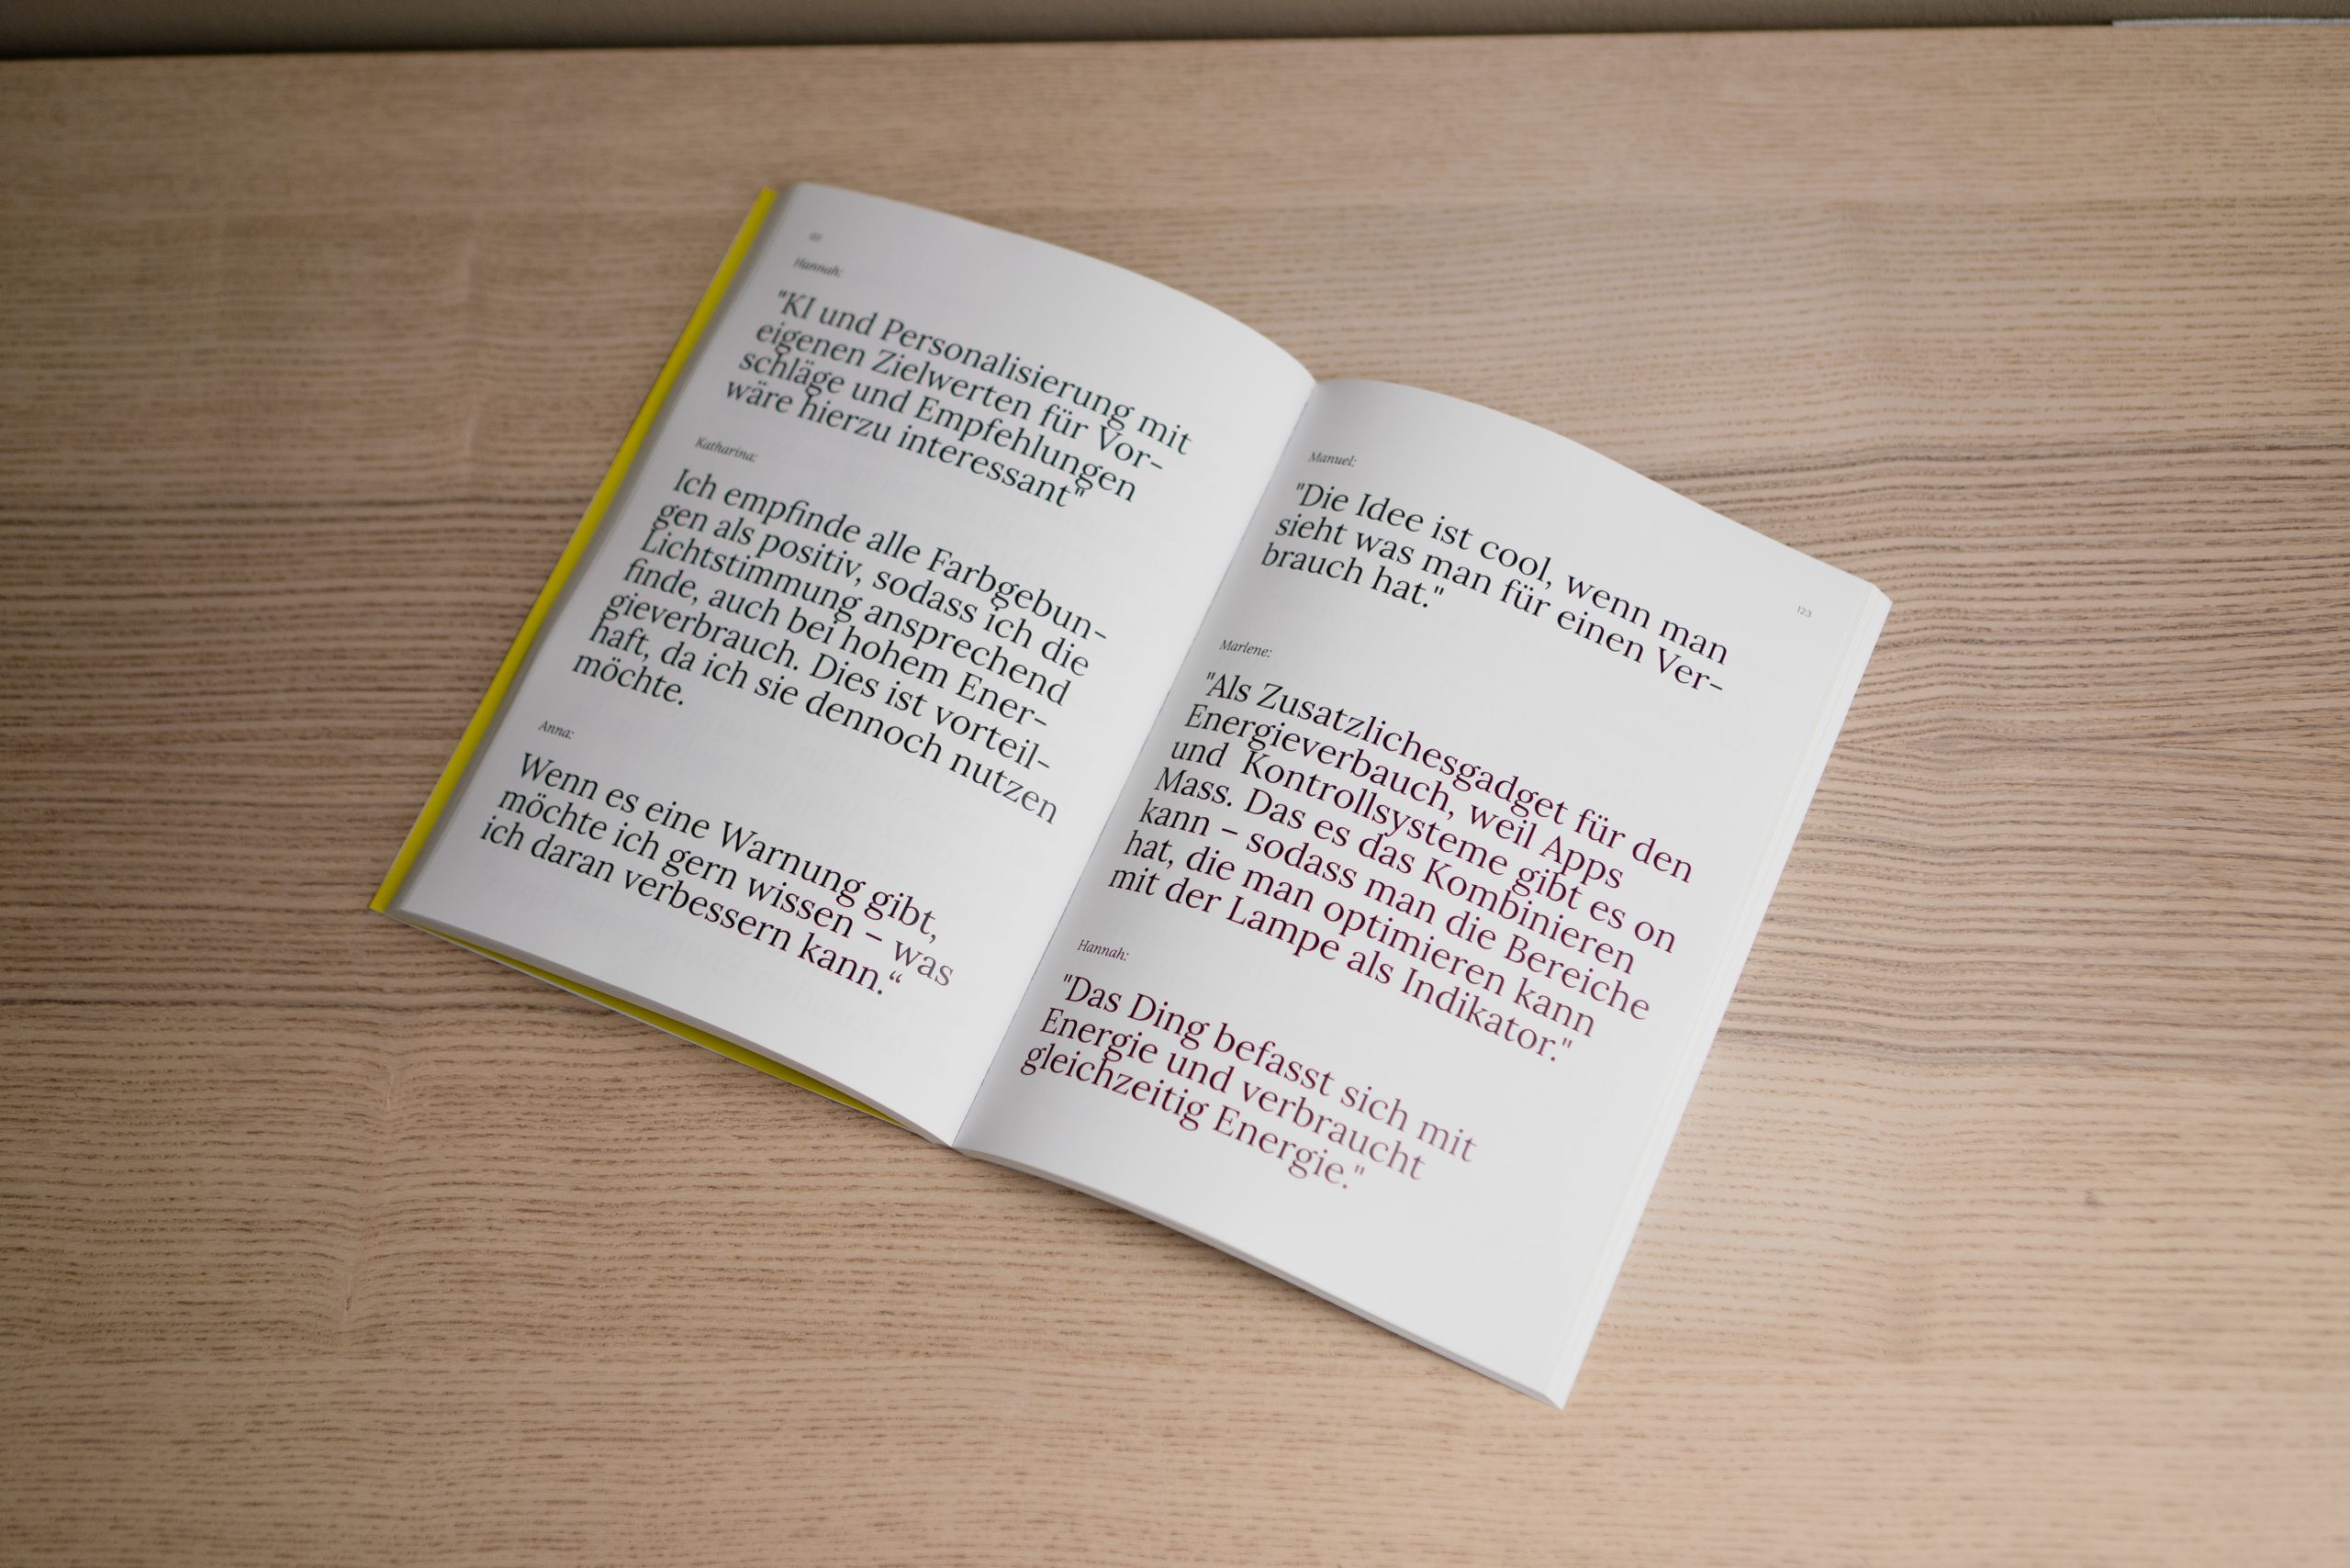 Hannah:
"KI und Personalisierung mit
eigenen Zielwerten für Vor-
schläge und Empfehlungen
wäre hierzu interessant"
Katharina:
Ich empfinde alle Farbgebun-
gen als positiv, sodass ich die
Lichtstimmung ansprechend
finde, auch bei hohem Ener-
gieverbrauch. Dies ist vorteil-
haft, da ich sie dennoch nutzen
möchte.
Anna:
Wenn es eine Warnung gibt,
möchte ich gern wissen – was
ich daran verbessern kann.“
123
Manuel:
"Die Idee ist cool, wenn man
sieht was man für einen Ver-
brauch hat."
Marlene:
"Als Zusatzlichesgadget für den
Energieverbauch, weil Apps
und Kontrollsysteme gibt es on
Mass. Das es das Kombinieren
kann – sodass man die Bereiche
hat, die man optimieren kann
mit der Lampe als Indikator."
Hannah:
"Das Ding befasst sich mit
Energie und verbraucht
gleichzeitig Energie."